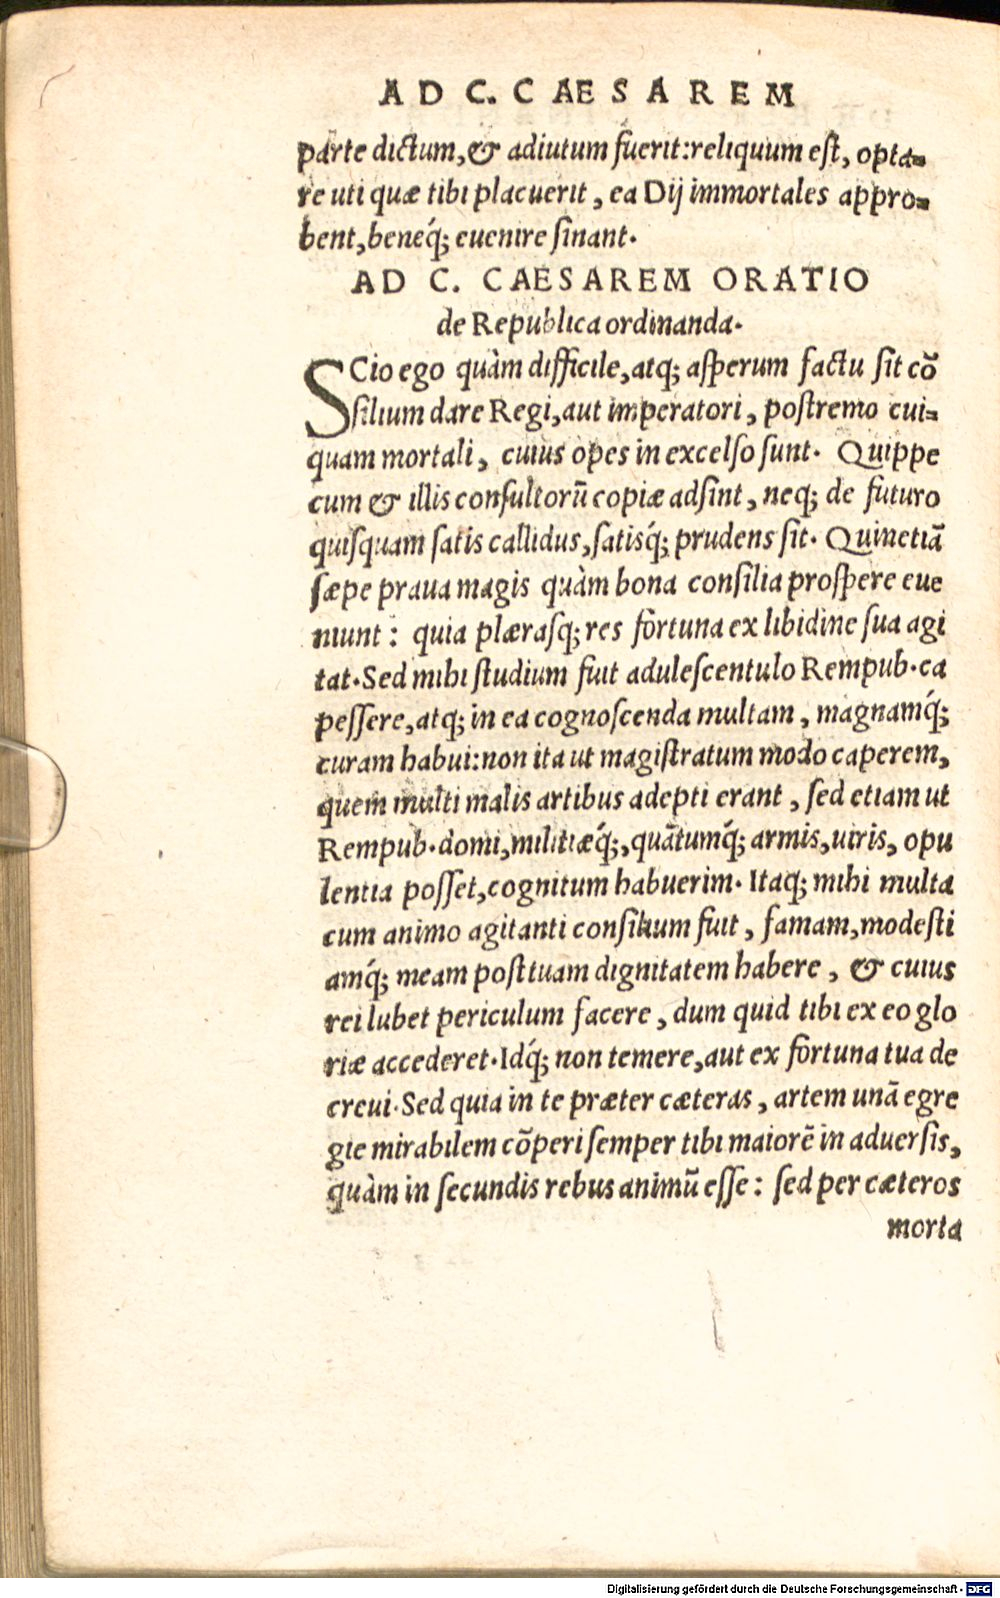 AD C. CAESAREM
parte dictum, & adiutum fuerit: reliquum est, opta-
re uti quæ tibi placuerit, ea Dij immortales appro-
bent, beneq́; euenire sinant.
AD C. CAESAREM ORATIO
de Republica ordinanda.
SCio ego quàm difficile, atq; asperum factu sit cõ
silium dare Regi, aut imperatori, postremo cui-
quam mortali, cuius opes in excelso sunt. Quippe
cum & illis consultorũ copiæ adsint, neq; de futuro
quisquam satis callidus, satisq́; prudens sit. Quinetiã
sæpe praua magis quàm bona consilia prospere eue
niunt: quia plærasq; res fortuna ex libidine sua agi
tat. Sed mihi studium fuit adulescentulo Rempub. ca
pessere, atq; in ea cognoscenda multam, magnamq́;
curam habui: non ita ut magistratum modo caperem,
quem multi malis artibus adepti erant, sed etiam ut
Rempub. domi, militiæq́;, quãtumq́; armis, uiris, opu
lentia posset, cognitum habuerim. Itaq; mihi multa
cum animo agitanti consilium fuit, famam, modesti
amq́; meam post tuam dignitatem habere, & cuius
rei lubet periculum facere, dum quid tibi ex eo glo
riæ accederet. Idq́; non temere, aut ex fortuna tua de
creui. Sed quia in te præter cæteras, artem unã egre
gie mirabilem cõperi semper tibi maiorẽ in aduersis,
quàm in secundis rebus animũ esse: sed per cæteros
morta
Digitalisierung gefördert durch die Deutsche Forschungsgemeinschaft - DFG